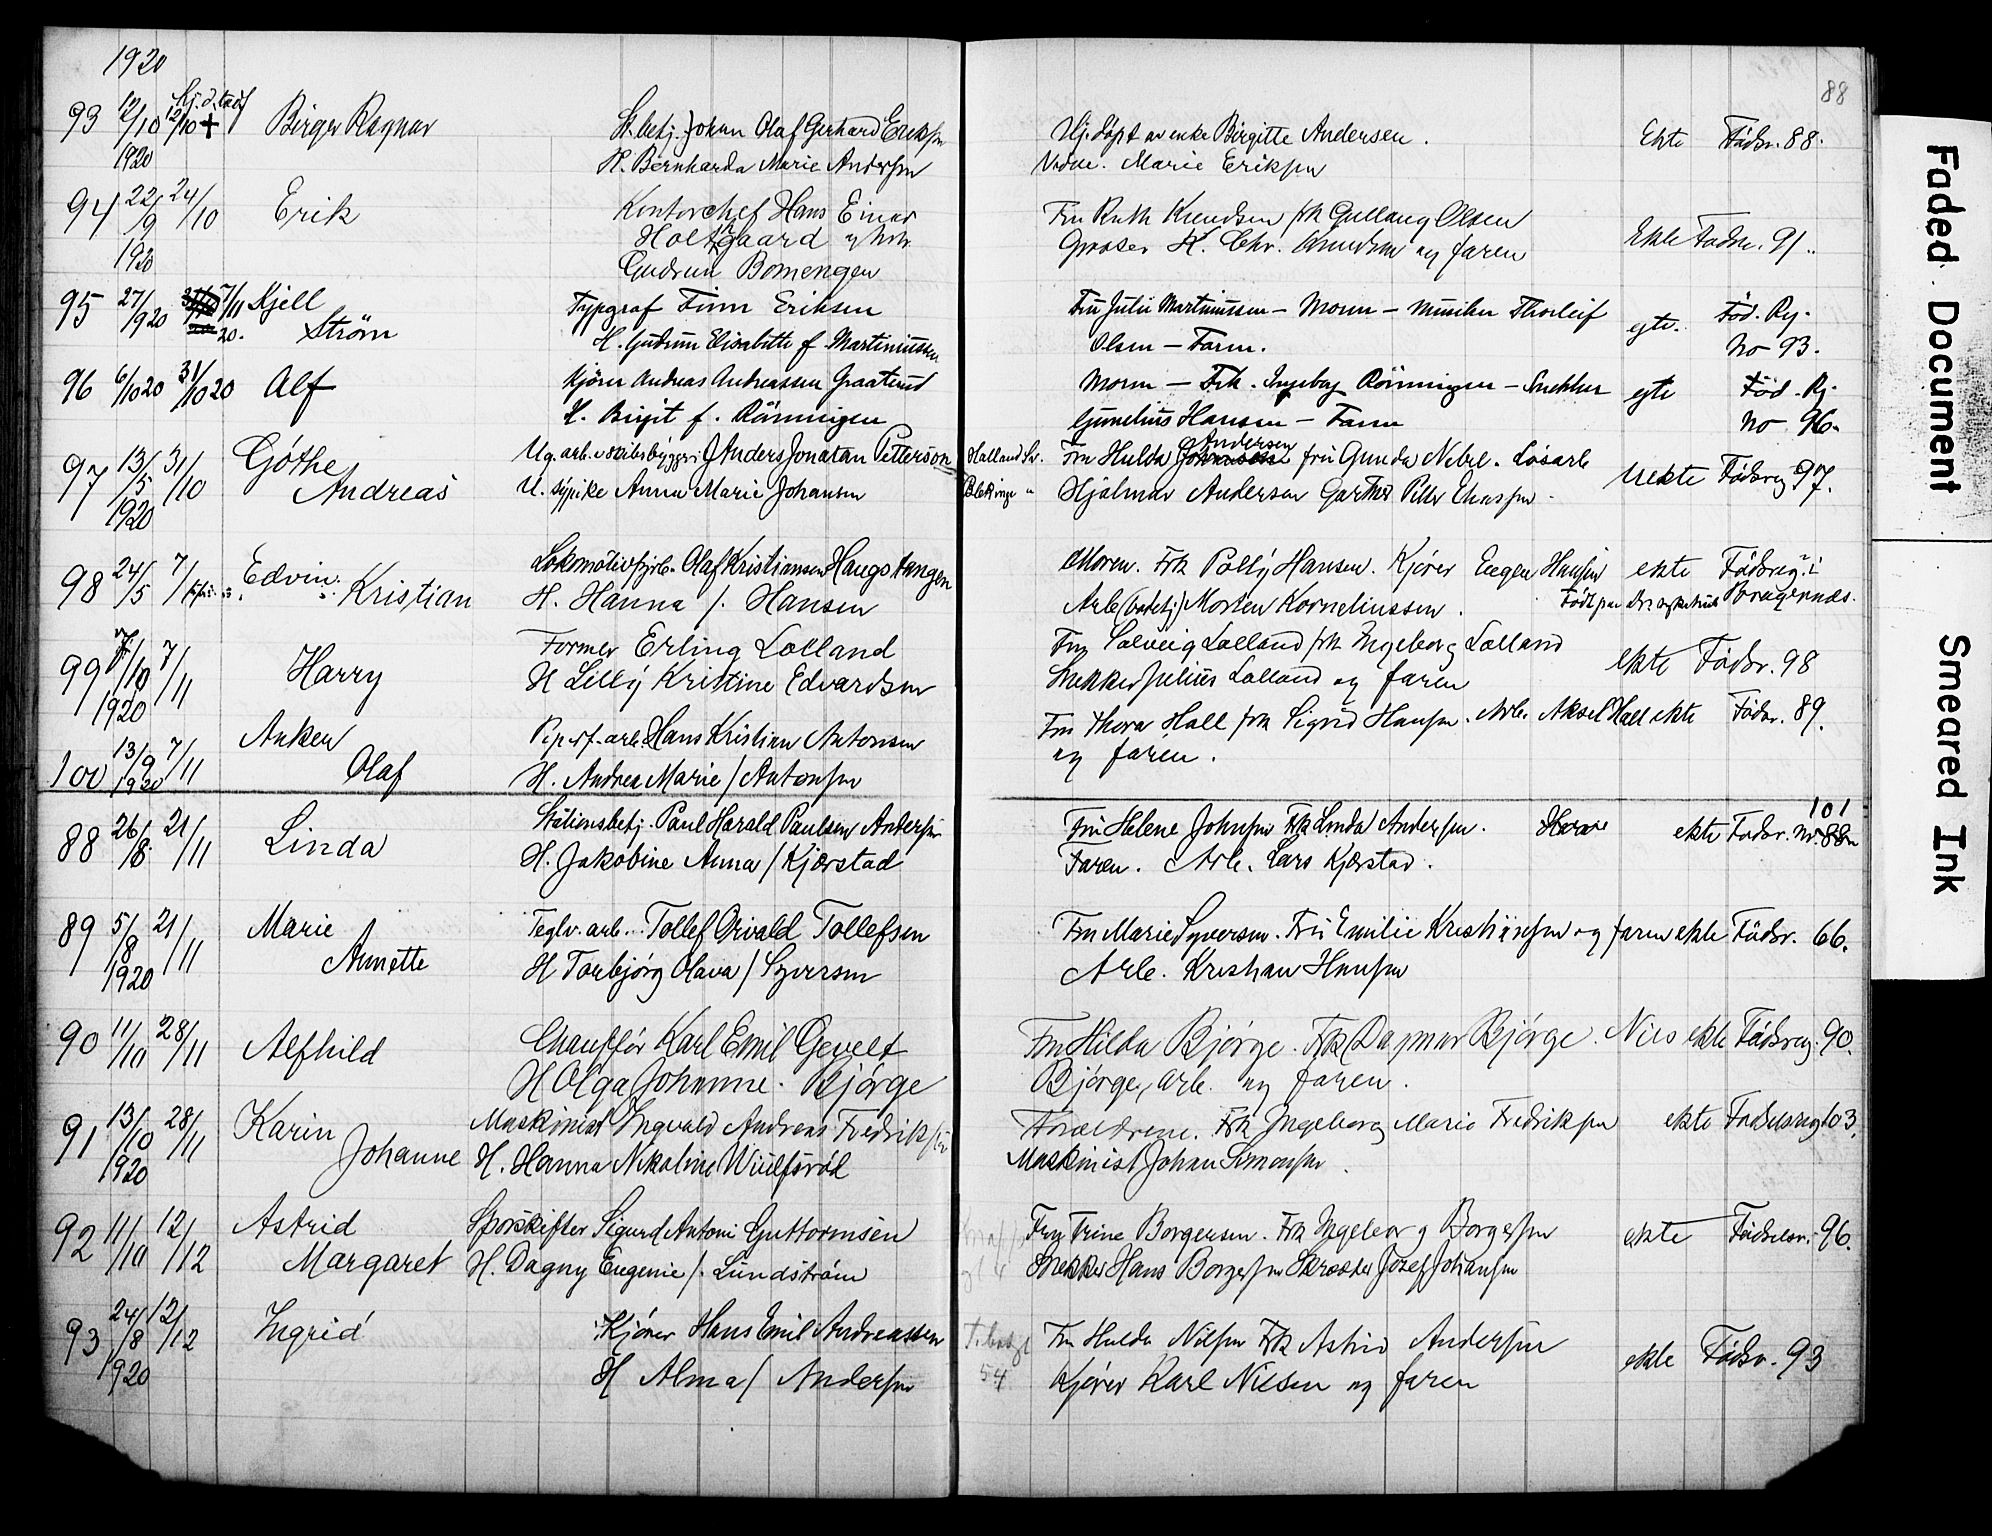 1920
88
93 12/10 12/10 + Birger Ragnar St.betj. Johan Olaf Gerhard Eriksen Hj.døpt av enke Birgitte Andersen. Ekte Fødsr. 88.
1920 H. Bernharda Marie Andersen Marie Eriksen
94 22/9 24/10 Erik Kontorchef Hans Einar Fru Ruth Knudsen frk Gullaug Olsen
Holtgaard og Gross. K. Chr. Knudsen og faren Ekte Fødsr. 91.
1920 Gudrun Bomengen
95 27/9 20 7/11 20. Kjell Typograf Finn Eriksen Fru Julie Martinussen – Moren – Musiker Thorleif egte. Fød. Rg.
Strøm H. Gudrun Elisabette f. Martinussen Olsen – Faren. No 93.
96 6/10 20 31/10 20 Alf Kjører Andreas Andreassen Graaterud Moren – Frk. Ingeborg Rønningen – Snekker egte Fød. Rg.
H. Birgit f. Rønningen Gunelius Hansen – Faren No 96.
Andersen
97 13/5 31/10 Gøthe Ug. arb. v. skibsbyggeri Anders Jonatan Petterson Halland Sv. Fru Hulda fru Gunda Nebel. Løsarb. uekte Fødsreg 97.
1920 Andreas U. sypike Anna Marie Johansen Blekinge " Hjalmar Andersen Gartner Peter Eliassen.
98 24/5 7/ Edvin Lokomotivfyrb. Olaf Kristiansen Haugstangen Moren. Frk Polly Hansen. Kjører Eugen Hansen ekte Fødsreg. i
Kristian H. Hanna f. Hansen Arb. Morten Korneliussen. Født paa Bragernæs.
99 7/10 7/11 Harry Former Erling Lolland Fru Solveig Lolland frk Ingeborg Lolland ekte Fødsr. 98
1920 H Lilly Kristine Edvardsen Snekker Julius Lolland og faren
100 13/9 7/11 Anken Hans Kristian Antonsen Fru Thora Hall frk Sigrid Hansen. Arb. Aksel Hall ekte Fødsr. 89.
1920 Olaf H. Andrea Marie f Antonsen og faren.
101
88 26/8 21/11 Linda Stationsbetj. Paul Harald Paulsen Andersen Fru Helene Johnsen Frk Linda Andersen. ekte Fødsr. nr. 88
H. Jakobine Anna f Kjærstad Faren. Arb. Lars Kjærstad.
89 5/8 21/11 Marie Teglv. arb. Tollef Osvald Tollefsen Fru Marie Syversen. Fru Emilie Kristiansen og faren ekte Fødsr. 66.
1920 Annette H Torbjørg Olava f Syversen Arb. Kristian Hansen
90 11/10 28/11 Alfhild Chauffør Karl Emil Gevelt Fru Hilda Bjørge. Frk Dagmar Bjørge. Nils ekte Fødsreg. 90.
H Olga Johanne. Bjørge Bjørge, arb. og faren.
91 13/10 28/11 Karin Maskinist Ingvald Andreas Fredriksen Forældrene. Frk Ingeborg Marie Fredriksen ekte Fødselsreg 103.
1920 Johanne H. Hanna Nikoline Wulfsrød Maskinist Johan Simonsen.
92 11/10 12/12 Astrid Sporskifter Sigurd Antoni Guttormsen Fru Trine Borgersen. Frk Ingeborg Borgersen ekte Fødselsr. 96.
Margaret H. Dagny Eugenie f. Lundstrøm Snekker Hans Borgersen Skrædder Josef Johansen
93 24/8 12/12 Ingrid Kjører Hans Emil Andreassen Fru Hulda Nilsen Frk Astrid Andersen ekte Fødsr. 93
1920 H Alma f Andersen 54 Kjører Karl Nilsen og faren
Faded Document
Smeared Ink